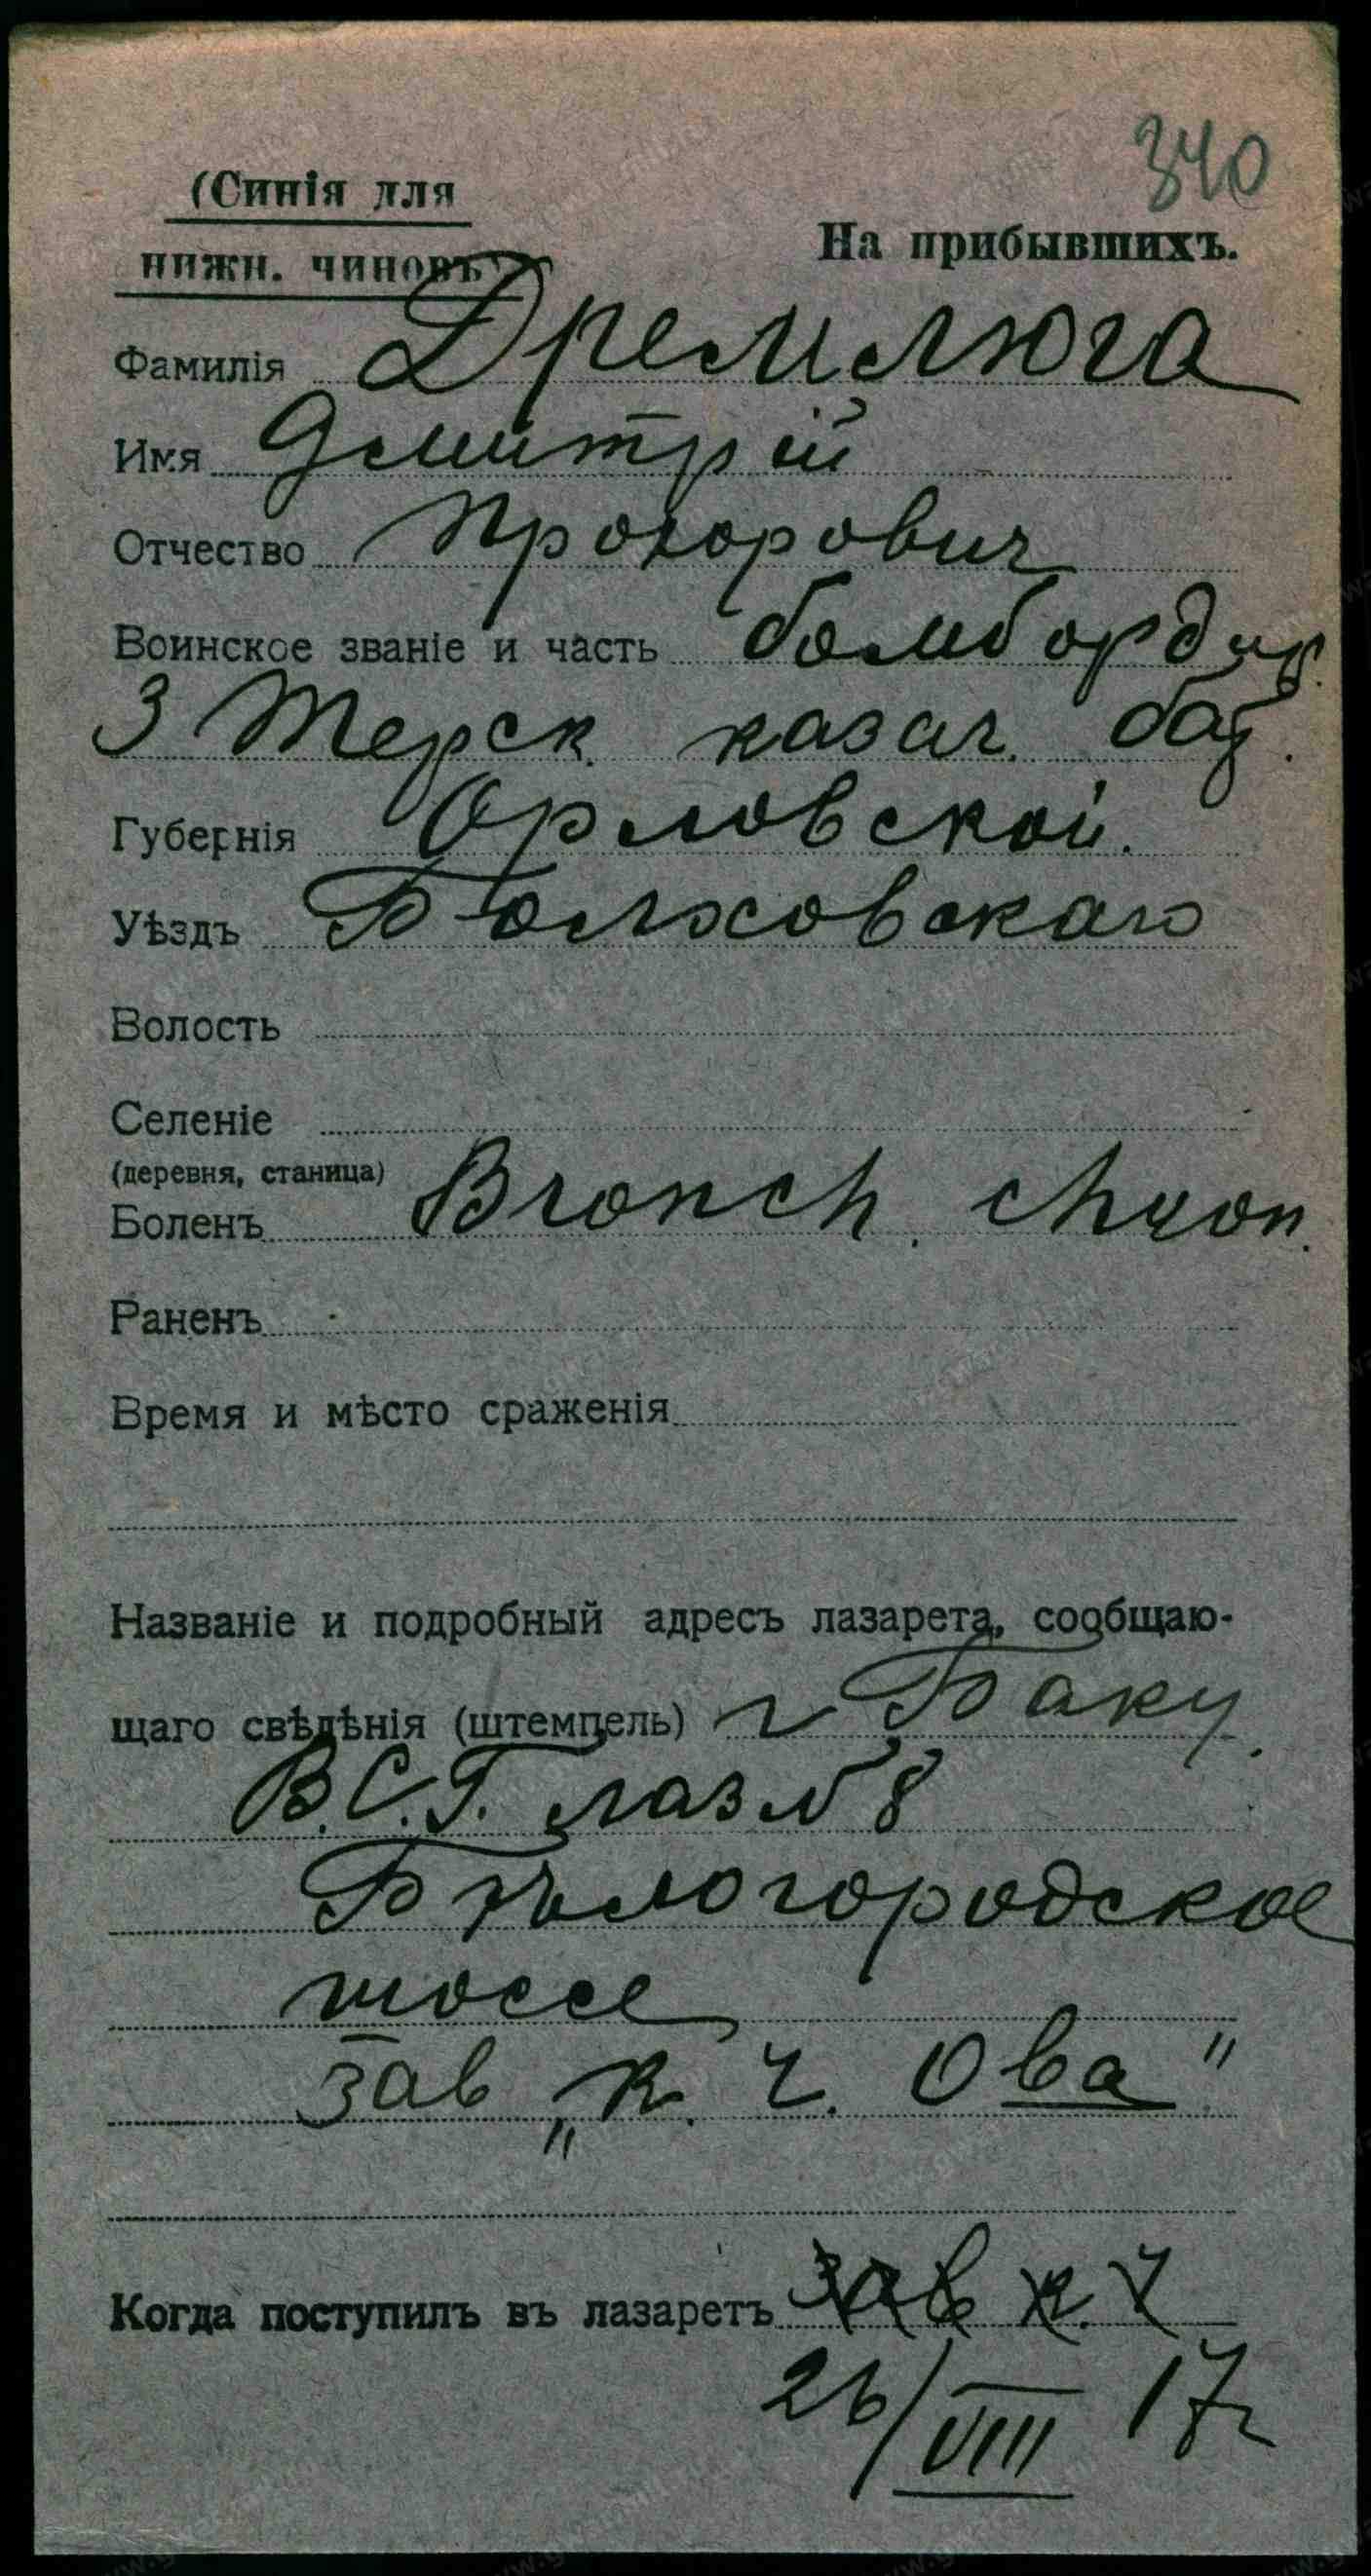 340
(Синія для
нижн. чиновъ)
На прибывшихъ.
Фамилія Дремлюга
Имя Дмитрій
Отчество Прохорович
Воинское званіе и часть бомбордир.
3 Терск. казач. бат.
Губернія Орловской.
Уѣздъ Болховскаго
Волость
Селеніе
(деревня, станица)
Боленъ Bronch. chron.
Раненъ
Время и мѣсто сраженія
Названіе и подробный адресъ лазарета, сообщаю-
щаго свѣдѣнія (штемпель) г Баку.
В.С.Г. лаз № 8
Бѣлогородское
шоссе
зав „К. Ч. Ова"
Когда поступилъ въ лазаретъ зав к. ч
26/VIII 17г